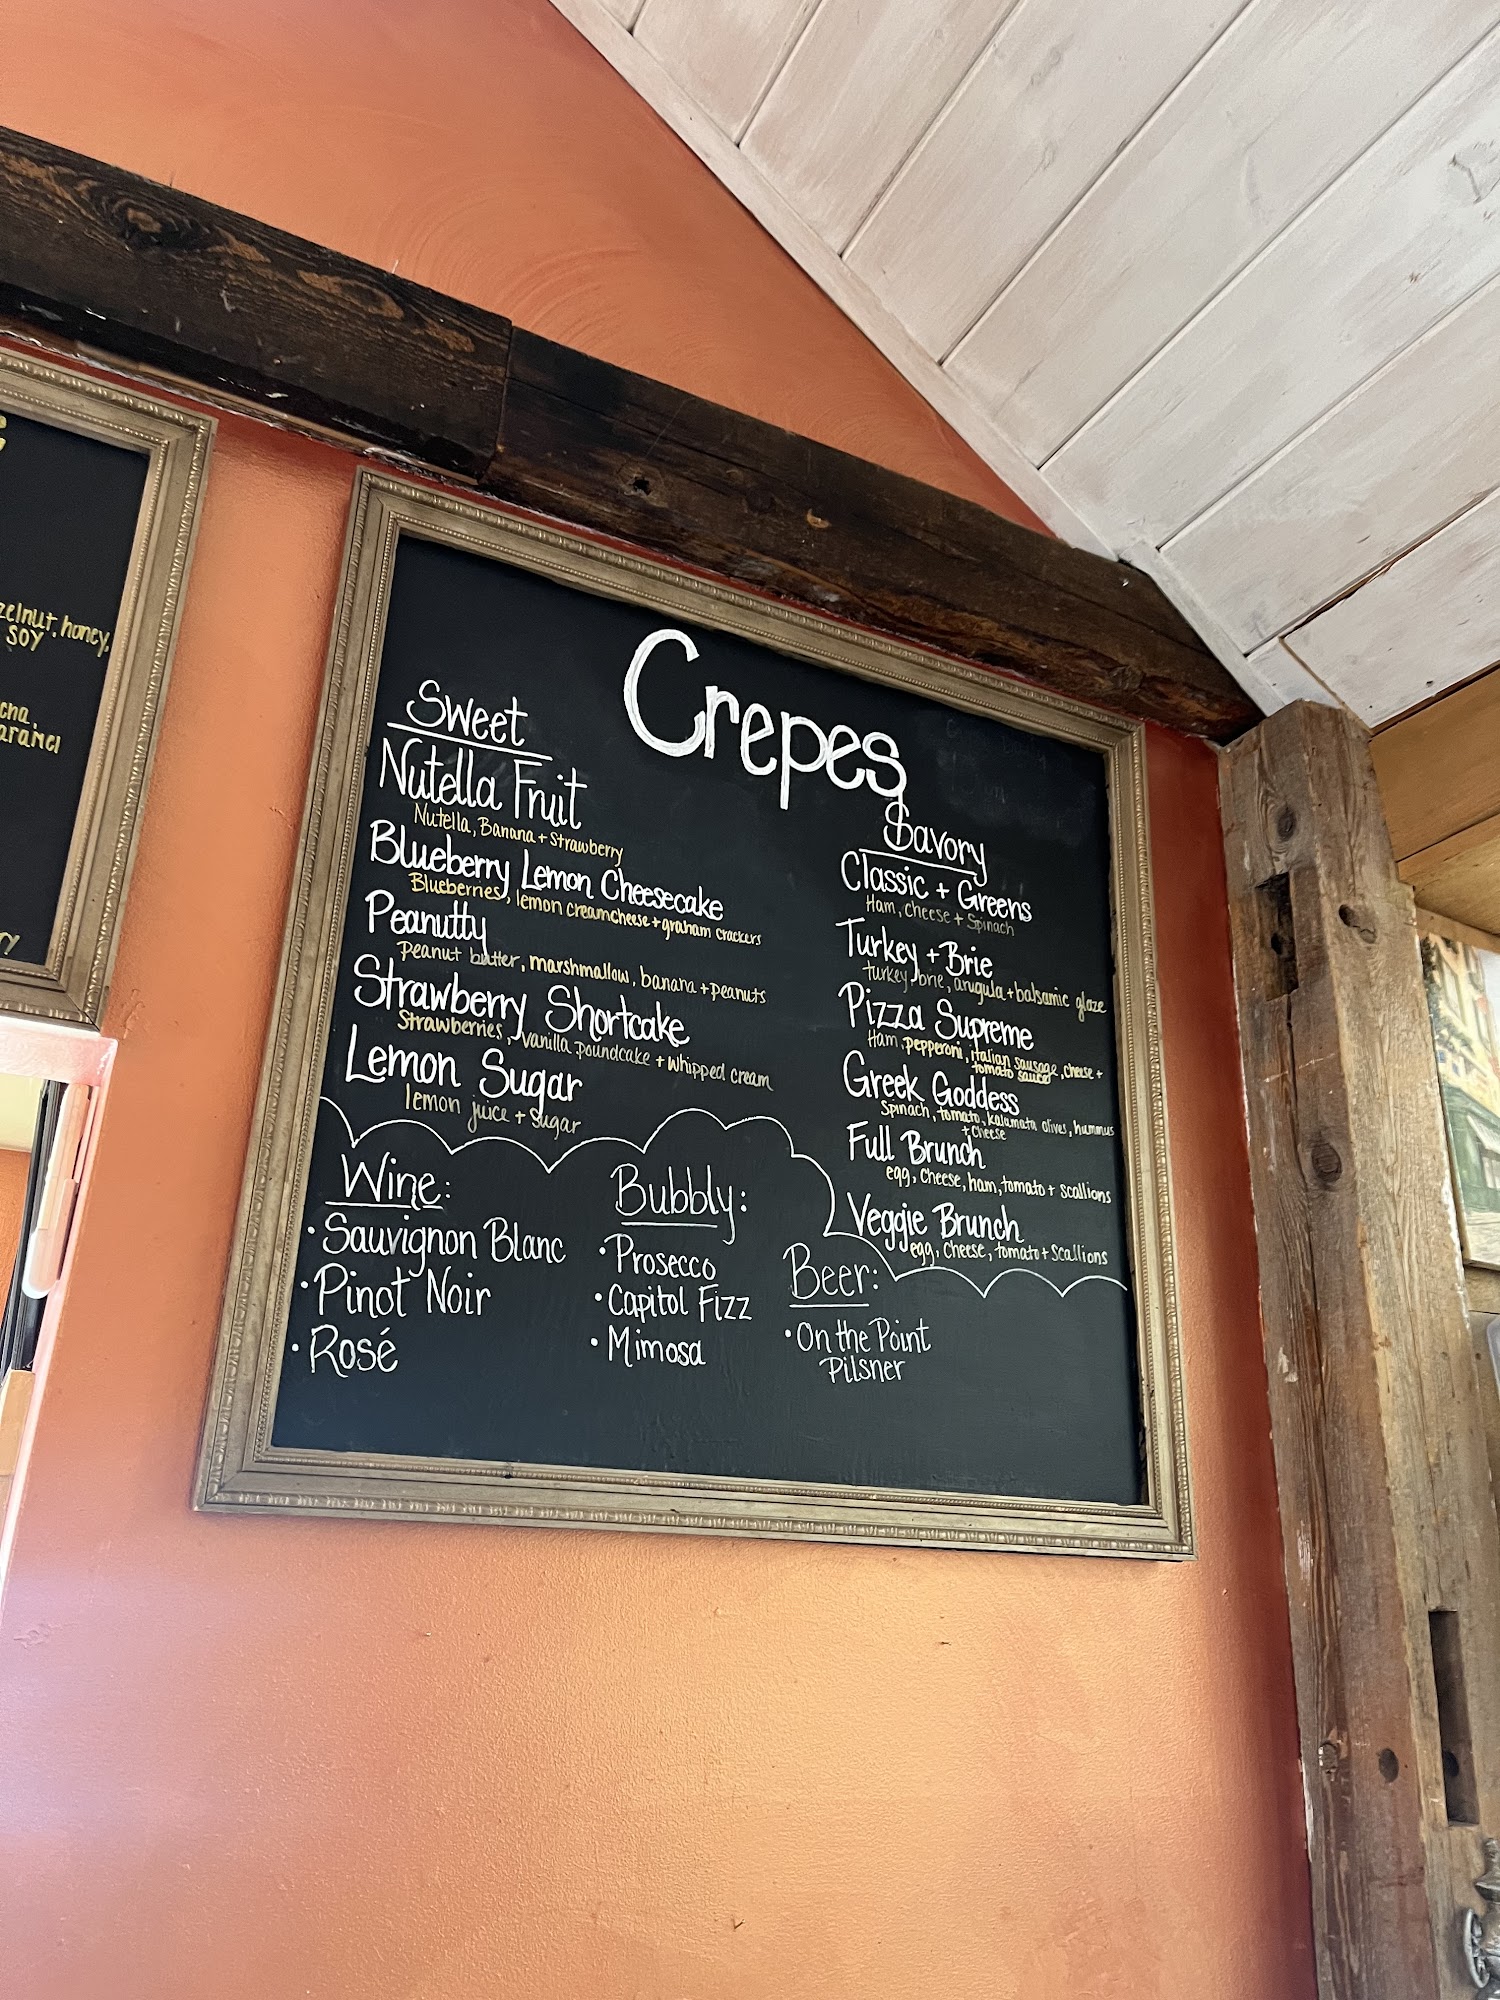 honey,
SOY
Crepes
Sweet
Nutella Fruit
Nutella, Banana + Strawberry
Blueberry Lemon Cheesecake
Blueberries, lemon creamcheese + graham crackers
Peanutty
peanut butter, marshmallow, banana + peanuts
Strawberry Shortcake
Strawberries, vanilla poundcake + whipped cream
Lemon Sugar
lemon juice + sugar
Savory
Classic + Greens
Ham, cheese + Spinach
Turkey + Brie
turkey, brie, arugula + balsamic glaze
Pizza Supreme
Ham, pepperoni, italian sausage, cheese +
tomato sauce
Greek Goddess
Spinach, tomato, kalamata olives, hummus
+ cheese
Full Brunch
egg, cheese, ham, tomato + scallions
Veggie Brunch
egg, cheese, tomato + scallions
Wine:
• Sauvignon Blanc
• Pinot Noir
• Rosé
Bubbly:
• Prosecco
• Capitol Fizz
• Mimosa
Beer:
• On the Point
Pilsner